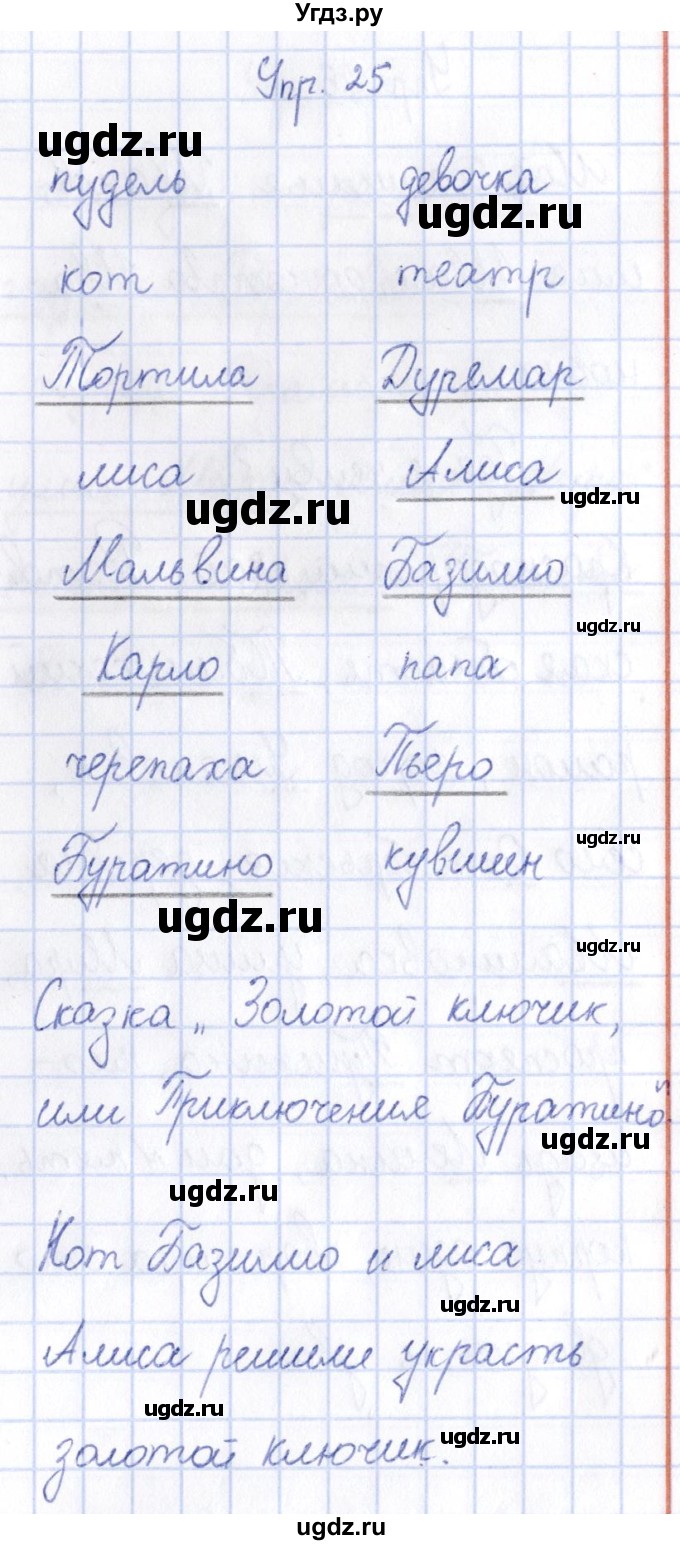 Угдз.ру
Упр. 25
ugdz.ru
пудель девочка
ugdz.ru
кот театр
Тортила Дуремар
лиса Алиса
ugdz.ru ugdz.ru
Мальвина Базилио
ugdz.ru
Карло папа
черепаха Пьеро
ugdz.ru
Буратино кувшин
ugdz.ru ugdz.ru
Сказка „Золотой ключик,
или Приключения Буратино".
ugdz.ru
ugdz.ru
Кот Базилио и лиса
ugdz.ru
Алиса решили украсть
ugdz.ru
золотой ключик.
ugdz.ru
ugdz.ru